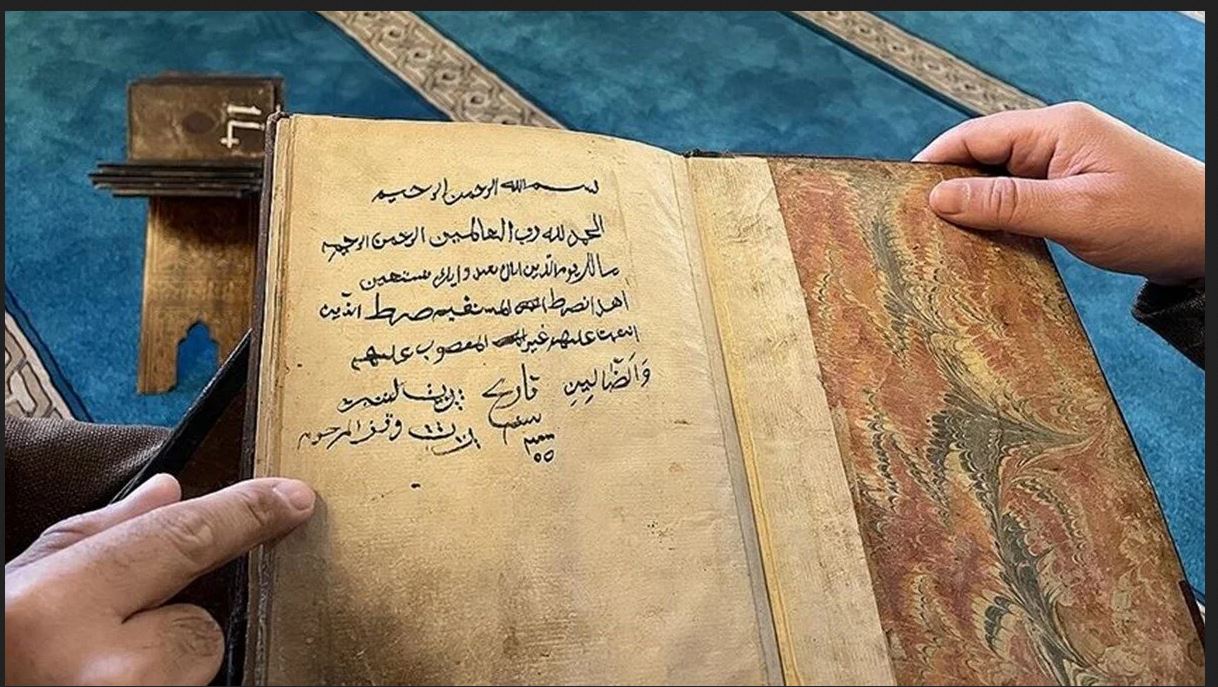 بسم الله الرحمن الرحيم
الحمد لله رب العالمين الرحمن الرحيم
مالك يوم الدين اياك نعبد واياك نستعين
اهدنا الصرط المستقيم صرط الذين
انعمت عليهم غير المغضوب عليهم
وَالضَّالِينِ تاريخ
سنه
وقف المرحوم